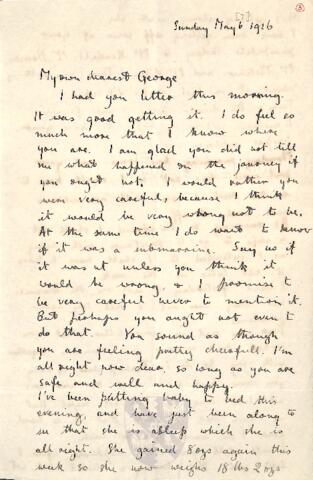 [7]
③
Sunday May 6 1916
My own dearest George
I had you letter this morning.
It was good getting it. I do feel so
much more that I know where
you are. I am glad you did not tell
me what happened on the journey if
you ought not. I would rather you
were very careful, because I think
it would be very wrong not to be.
At the same time I do want to know
if it was a submarine. Say so if
it was unless you think it
would be wrong, & I promise to
be very careful never to mention it.
But perhaps you ought not even to
do that. You sound as though
you are feeling pretty cheerful. I'm
all right now dear, so long as you are
safe and well and happy.
I've been putting baby to bed this
evening, and have just been along to
see that she is asleep which she is
all right. She gained 8 ozs again this
week so she now weighs 18 lbs 2 ozs